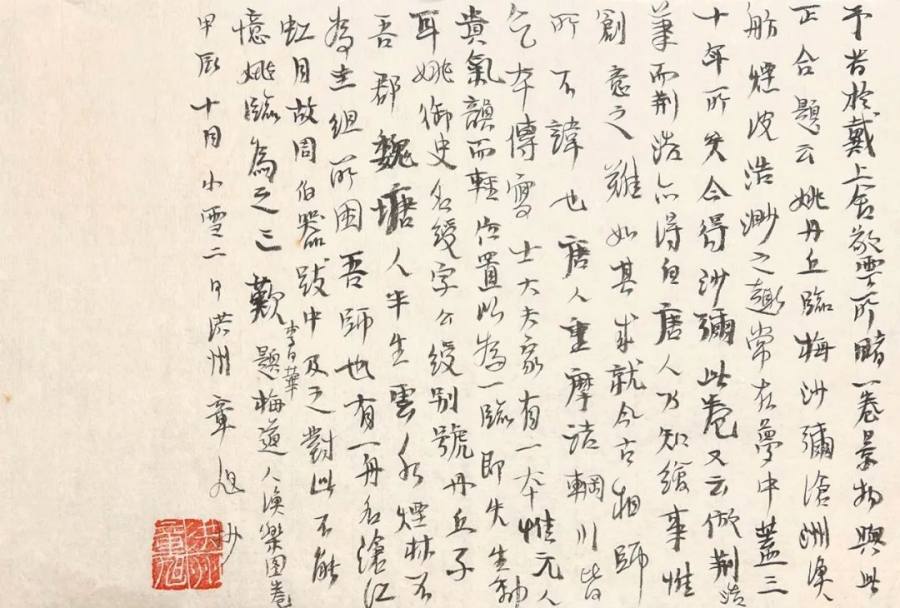 予昔於戴上舍敬雲所睹一卷景物與此
正合題云姚丹丘臨梅沙彌滄洲漁
舫煙波浩渺之趣常在夢中蓋三
十年所矣今得沙彌此卷又云倣荊浩
筆而荊浩亦得自唐人乃知繪事惟
創意之難如其成就今古相師
所不諱也唐人重摩詰輞川皆
乞本傳寫士大夫家有一本惟元人
貴氣韻而輕位置以為一臨即失生動
耳姚御史名綬字公綬別號丹丘子
吾郡魏塘人半生雲水煙林不
為圭組所困吾師也有一舟名滄江
虹月故周伯器跋中及之對此不能
憶姚臨為之三歎 李日華題梅道人漁樂圖卷
甲辰十月小雪二日洪州章旭抄
洪州章旭